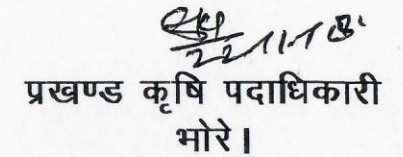 22.11.18
प्रखण्ड कृषि पदाधिकारी
भोरे।